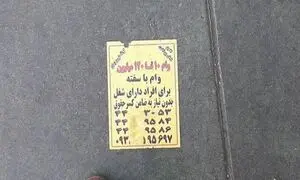 وام ۱۰ تا ۱۲۰ میلیون
وام با سفته
برای افراد دارای شغل
بدون نیاز به ضامن کسرحقوق
۴۴ ۳۰۵۳
۴۴ ۹۵۸۴
۴۴ ۹۵۸۶
۰۹۳ ۱۹۵۶۹۷